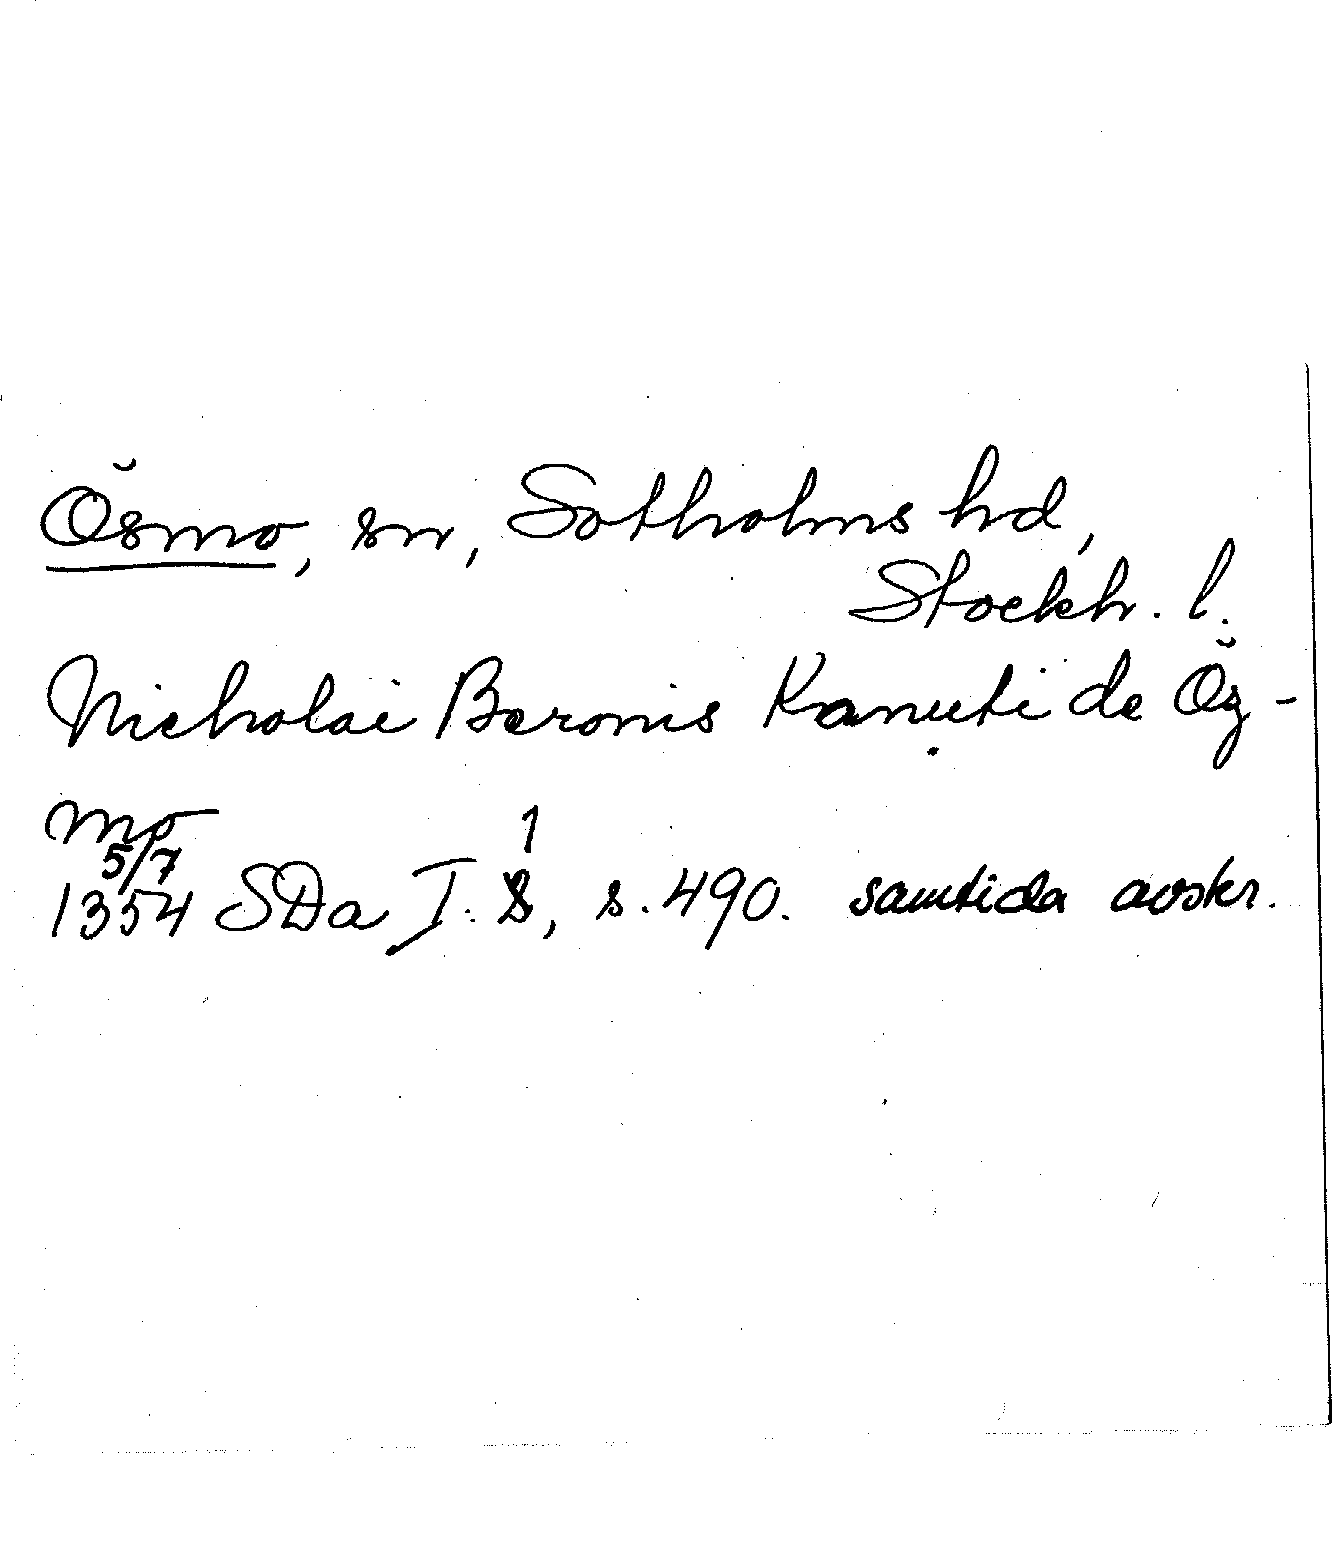 Ösmo, sn, Sotholms hd,
Stockh. l.
Nicholai Beronis Kanuti de Öz-
mo
5/7
1354 SDa I. 1, s. 490. samtida avskr.